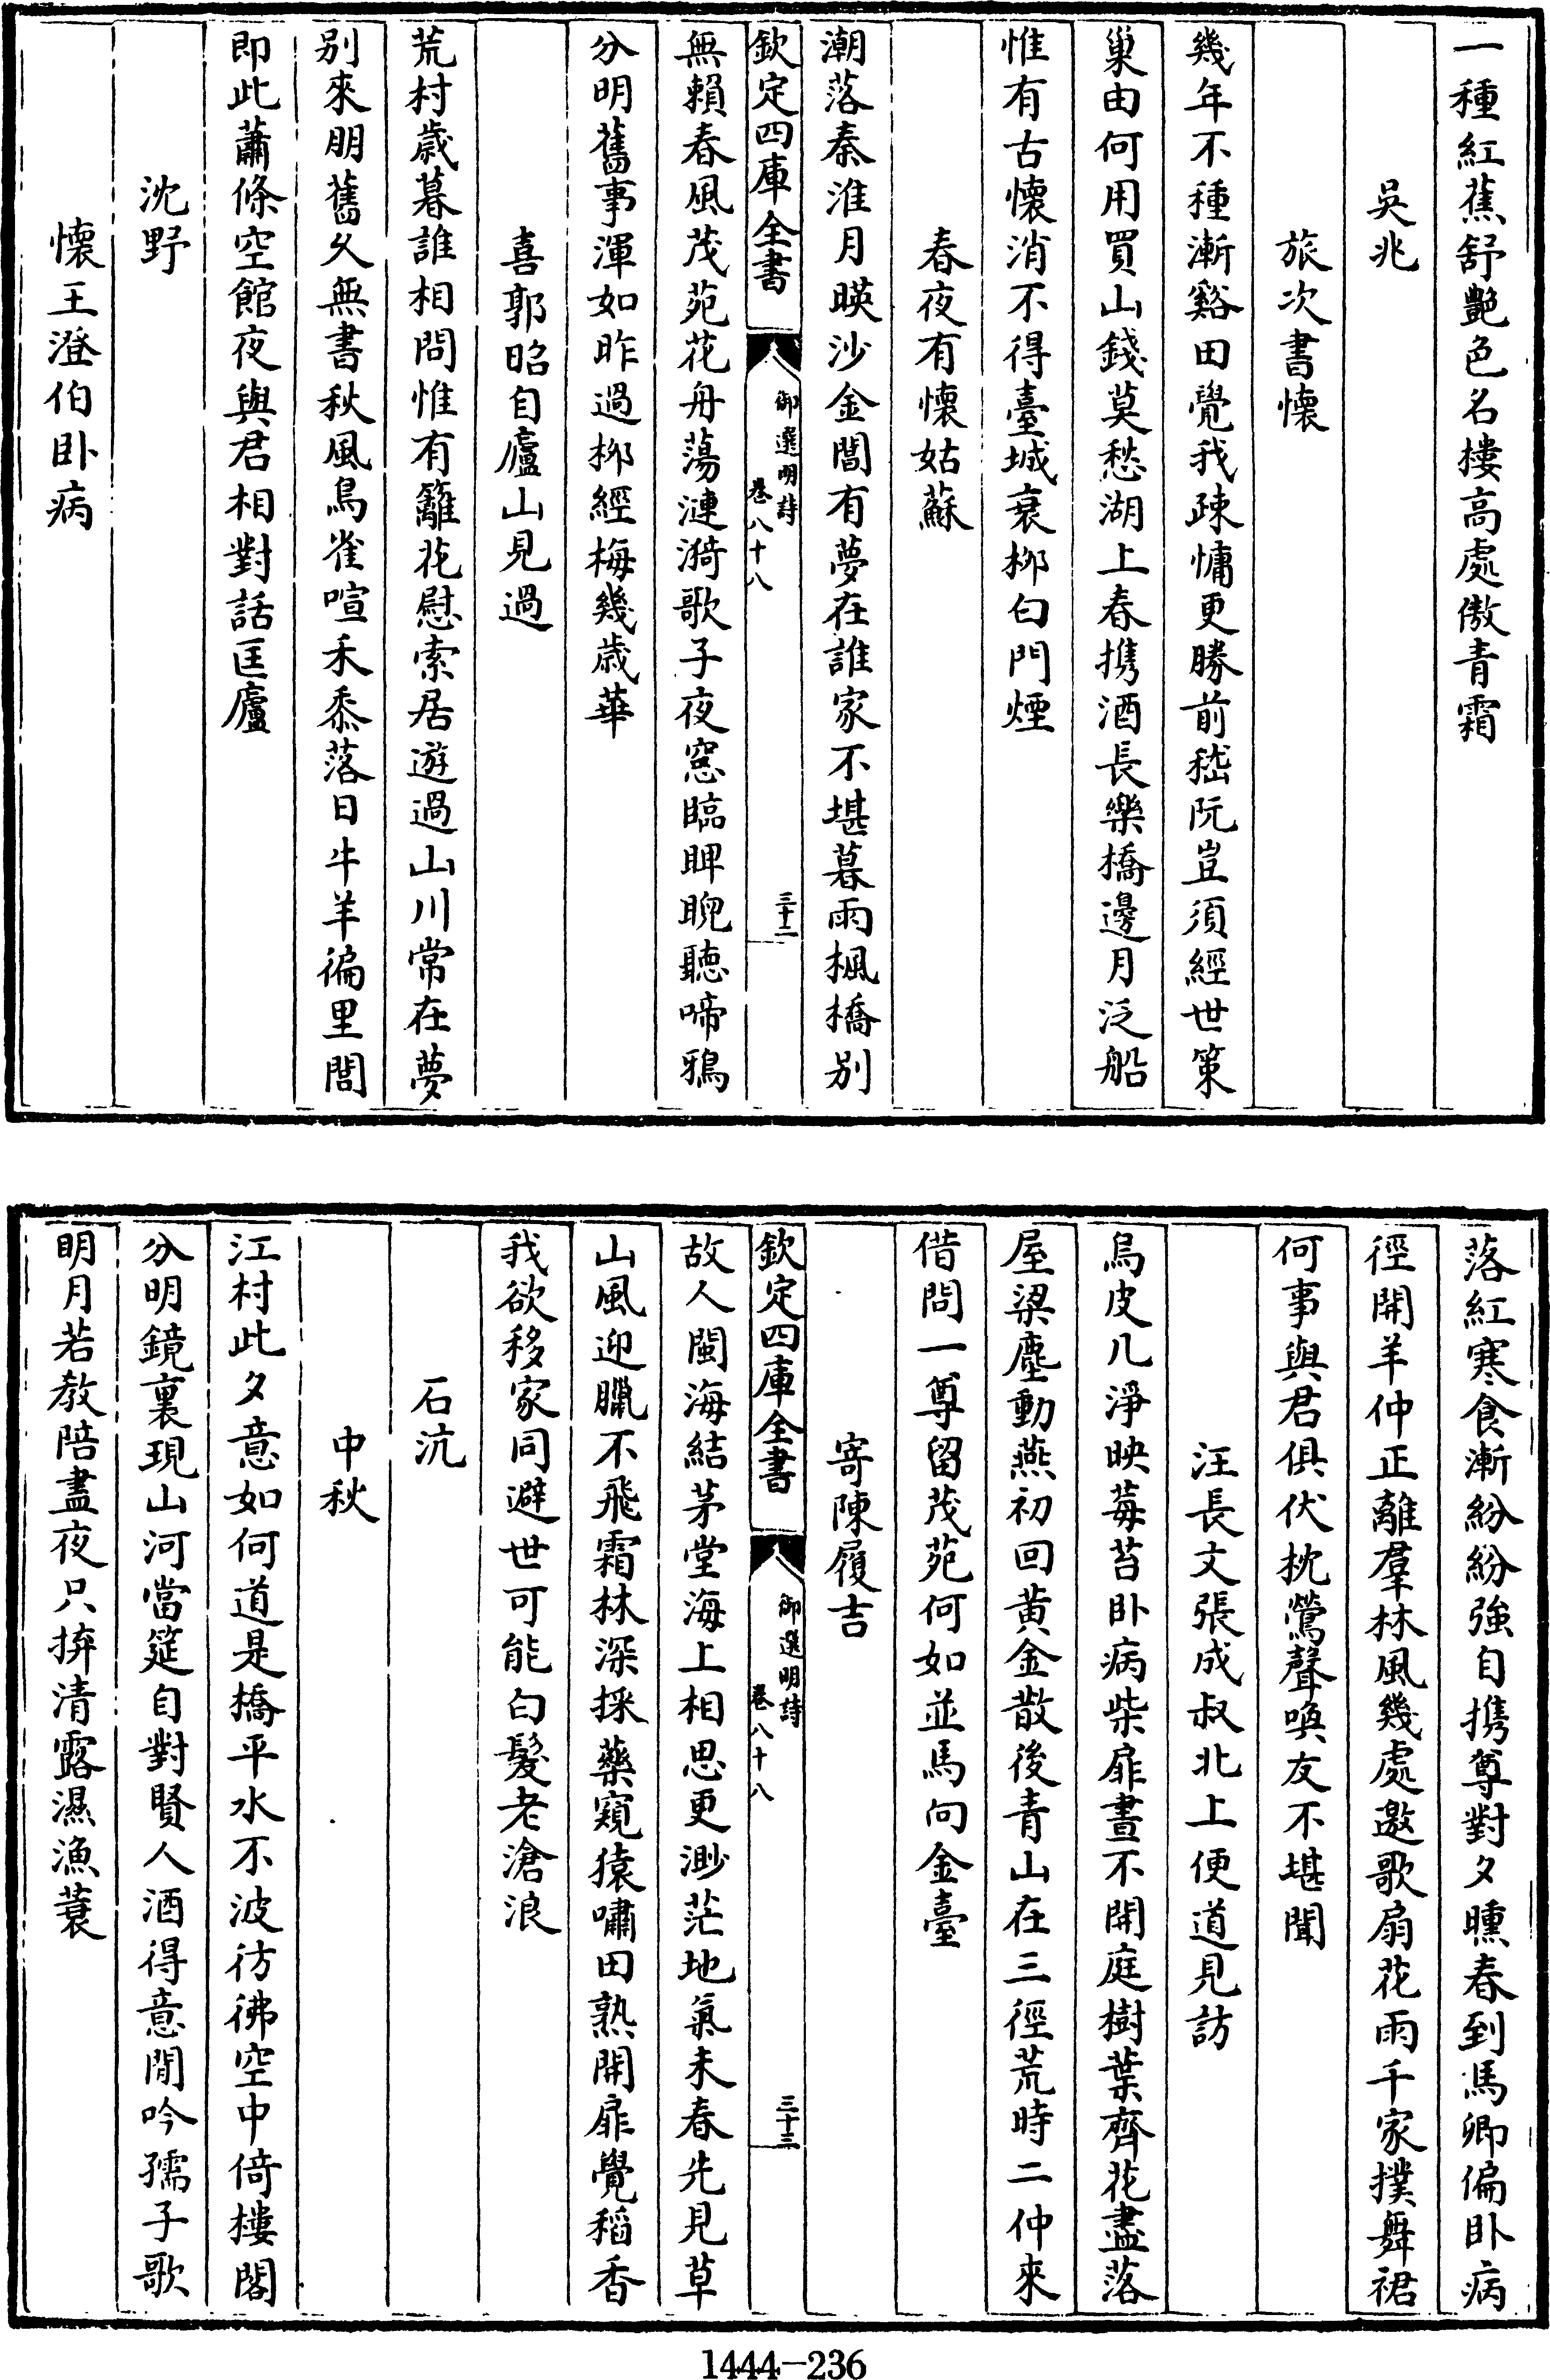 一種紅蕉舒艶色名樓高處傲青霜
吳兆
旅次書懷
幾年不種漸谿田覺我疎慵更勝前嵇阮豈須經世策
巢由何用買山錢莫愁湖上春携酒長樂橋邊月泛船
惟有古懷消不得臺城衰柳白門煙
春夜有懷姑蘇
潮落秦淮月暎沙金閶有夢在誰家不堪暮雨楓橋別
欽定四庫全書
御選明詩
卷八十八
三十二
無賴春風茂苑花舟蕩漣漪歌子夜窓臨睥睨聽啼鴉
分明舊事渾如昨過柳經梅幾歲華
喜郭昭自廬山見過
荒村歲暮誰相問惟有籬花慰索居遊過山川常在夢
別來朋舊久無書秋風鳥雀喧禾黍落日牛羊徧里閭
即此蕭條空館夜與君相對話匡廬
沈野
懷王澄伯臥病
落紅寒食漸紛紛強自携尊對夕曛春到馬卿偏臥病
徑開羊仲正離羣林風幾處邀歌扇花雨千家撲舞裙
何事與君俱伏枕鶯聲喚友不堪聞
汪長文張成叔北上便道見訪
烏皮几淨映莓苔臥病柴扉晝不開庭樹葉齊花盡落
屋梁塵動燕初回黃金散後青山在三徑荒時二仲來
借問一尊留茂苑何如並馬向金臺
寄陳履吉
欽定四庫全書
御選明詩
卷八十八
三十三
故人閩海結茅堂海上相思更渺茫地氣未春先見草
山風迎臘不飛霜林深採藥窺猿嘯田熟開扉覺稻香
我欲移家同避世可能白髮老滄浪
石沆
中秋
江村此夕意如何道是橋平水不波彷彿空中倚樓閣
分明鏡裏現山河當筵自對賢人酒得意閒吟孺子歌
明月若教陪盡夜只拚清露濕漁蓑
1444-236